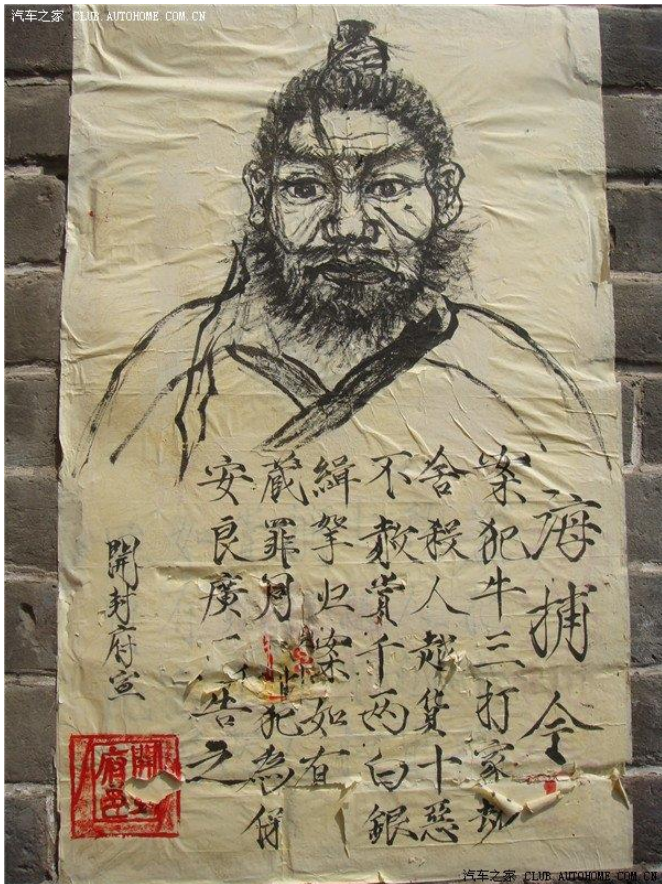 汽车之家 CLUB.AUTOHOME.COM.CN
海捕令
案犯牛三打家劫
舍殺人越貨十惡
不赦賞千两白銀
緝拏归案如有
蔵罪同犯為保
安良廣告之
開封府宣
汽车之家 CLUB.AUTOHOME.COM.CN